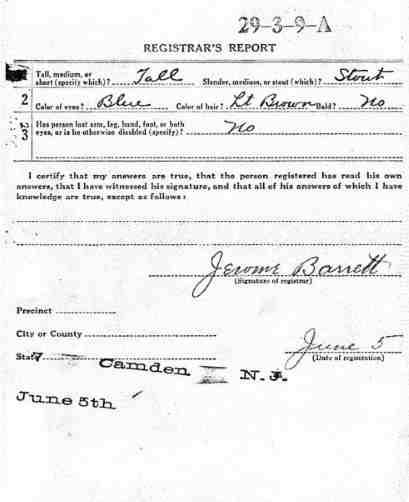 29-3-9-A
REGISTRAR'S REPORT
Tall, medium, or
short (specify which)? Tall Slender, medium, or stout (which)? Stout
2 Color of eyes? Blue Color of hair? Lt Brown Bald? No
3 Has person lost arm, leg, hand, foot, or both
eyes, or is he otherwise disabled (specify)? No
I certify that my answers are true, that the person registered has read his own
answers, that I have witnessed his signature, and that all of his answers of which I have
knowledge are true, except as follows:
Jerome Barrett
(Signature of registrar)
Precinct
City or County
State
June 5
(Date of registration)
Camden N.J.
June 5th